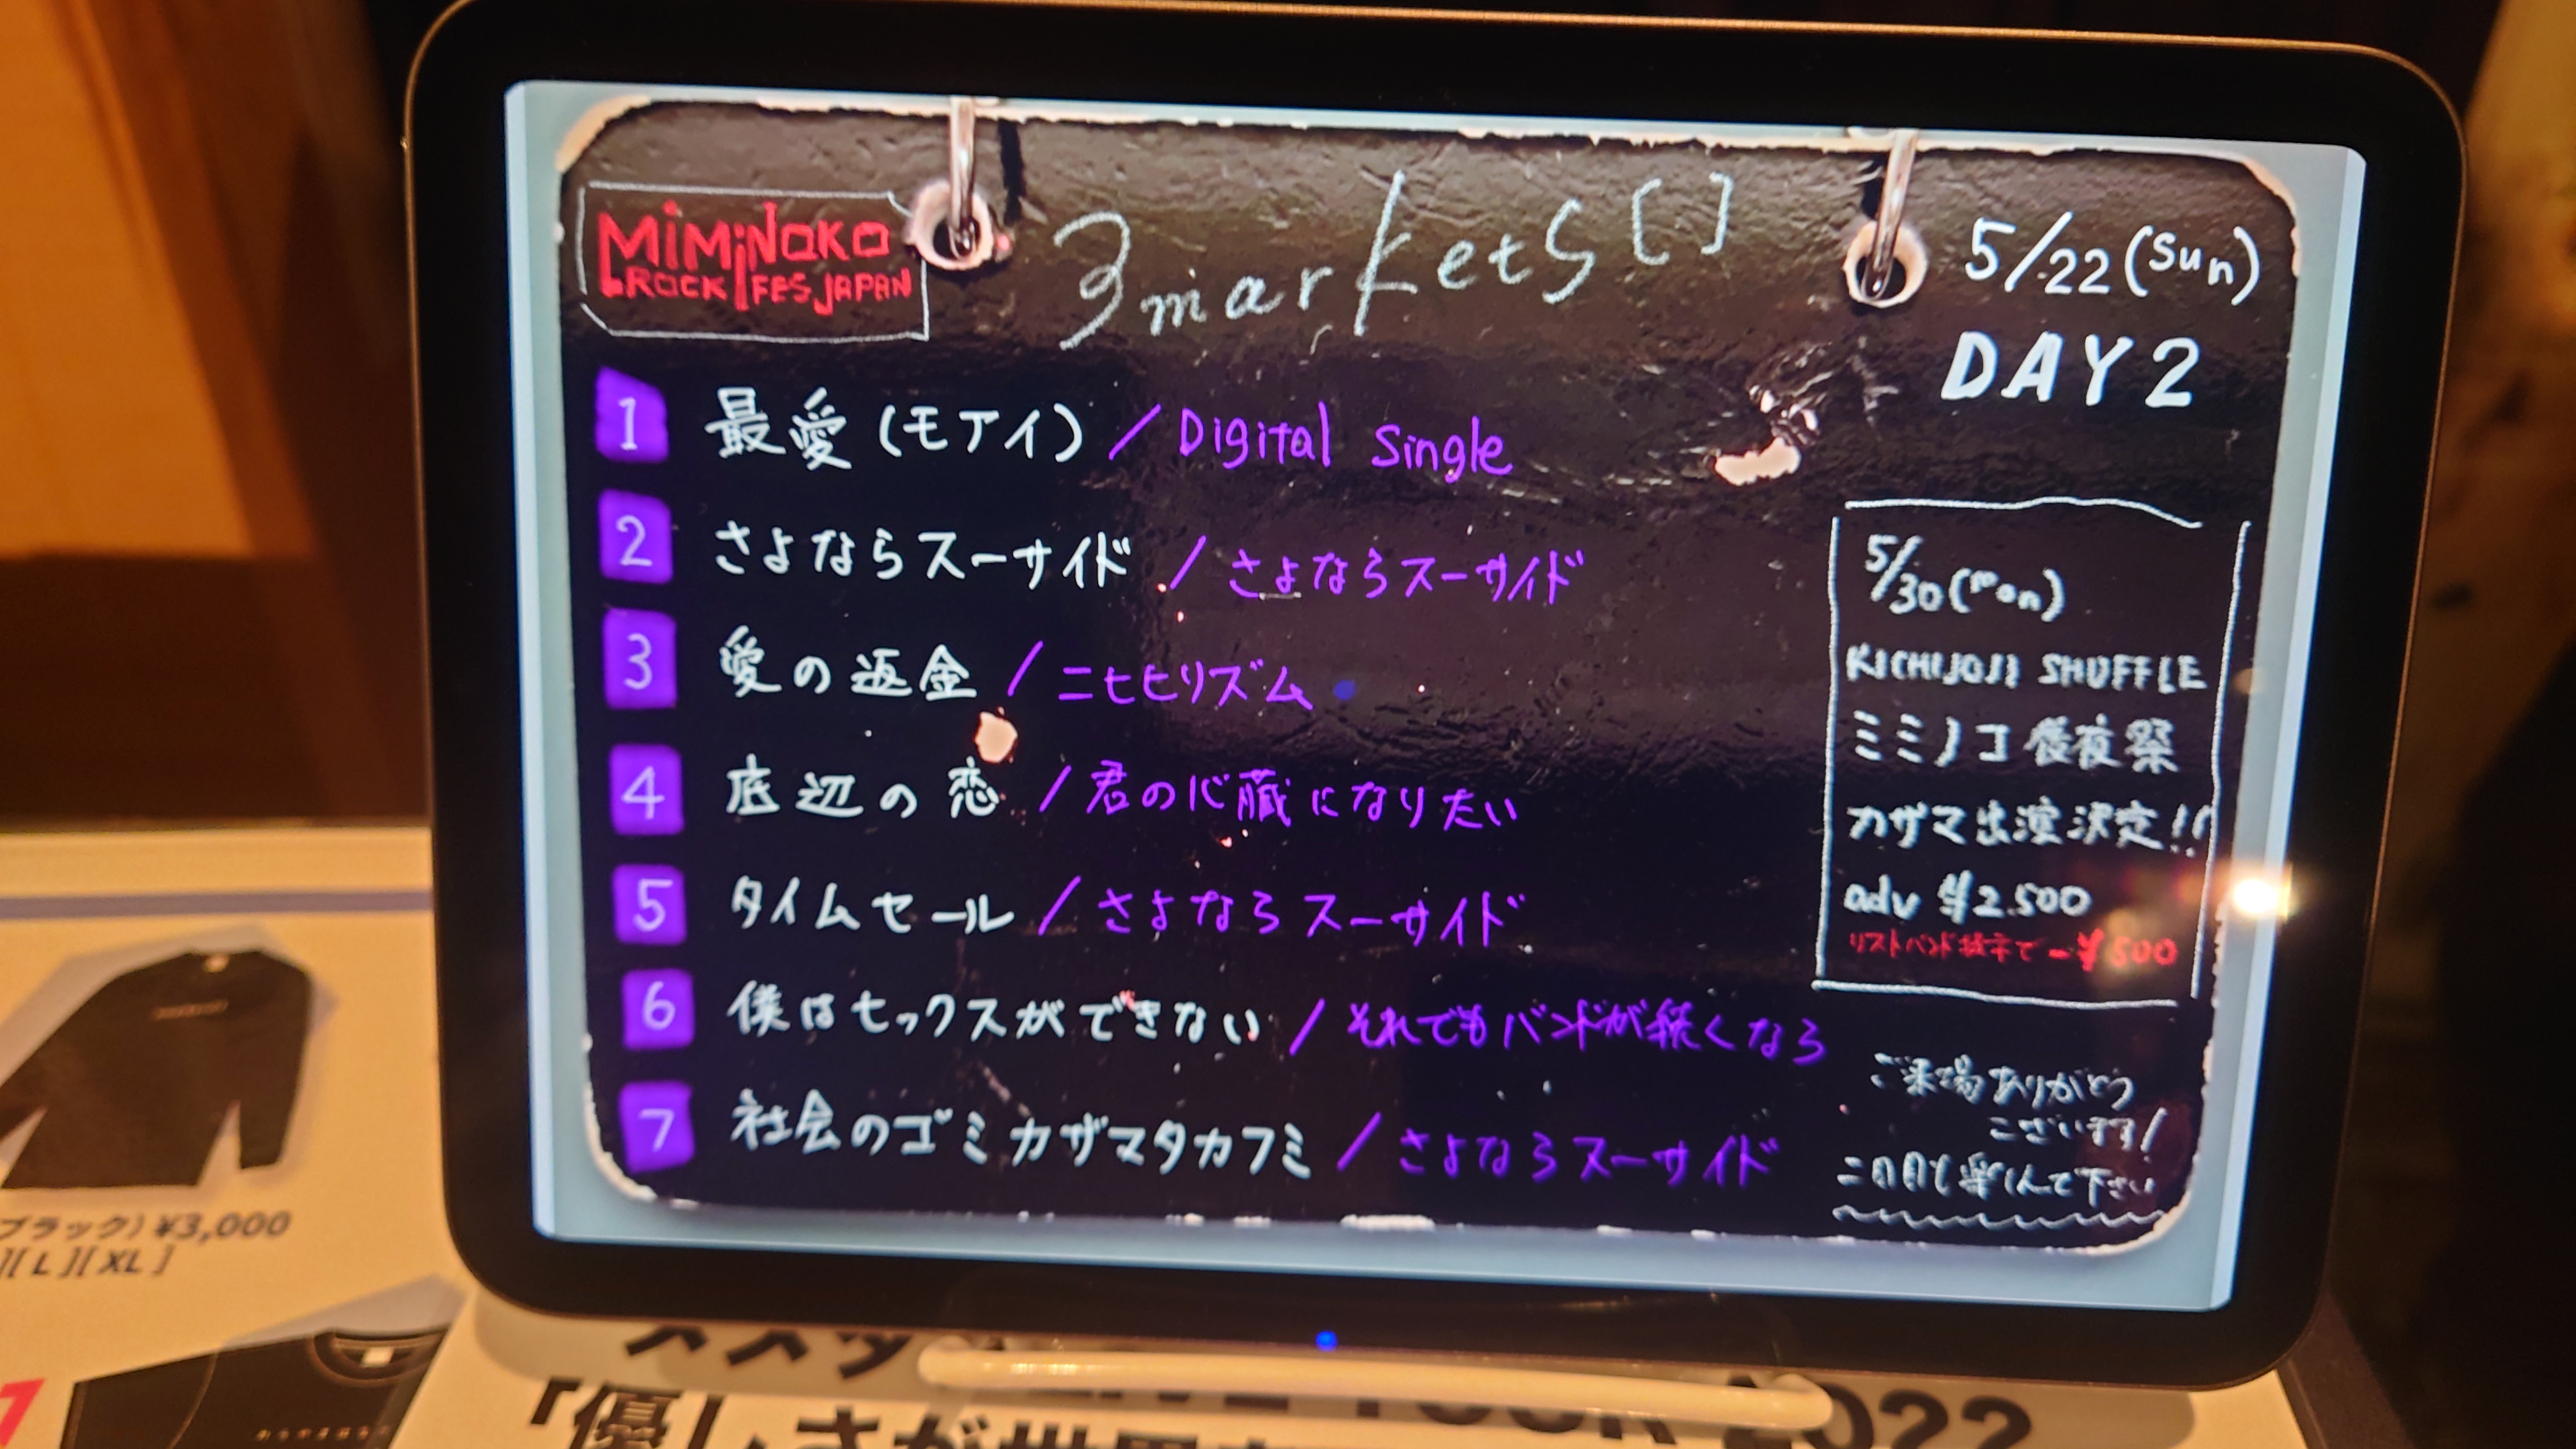 MiMiNOKO
ROCK FES JAPAN
3markets[]
5/22(Sun)
DAY2
1 最愛(モアイ) / Digital Single
2 さよならスーサイド / さよならスーサイド
3 愛の返金 / ニヒヒリズム
4 底辺の恋 / 君の心臓になりたい
5 タイムセール / さよならスーサイド
6 僕はセックスができない / それでもバンドが続くなら
7 社会のゴミカザマタカフミ / さよならスーサイド
5/30(mon)
KICHIJOJI SHUFFLE
ミミノコ後夜祭
カザマ出演決定!!
adv ¥2.500
リストバンド提示で-¥500
ご来場ありがとう
ございます!
二日目も楽しんで下さい
ブラック) ¥3,000
][L][XL]
2022
「優しさが世界